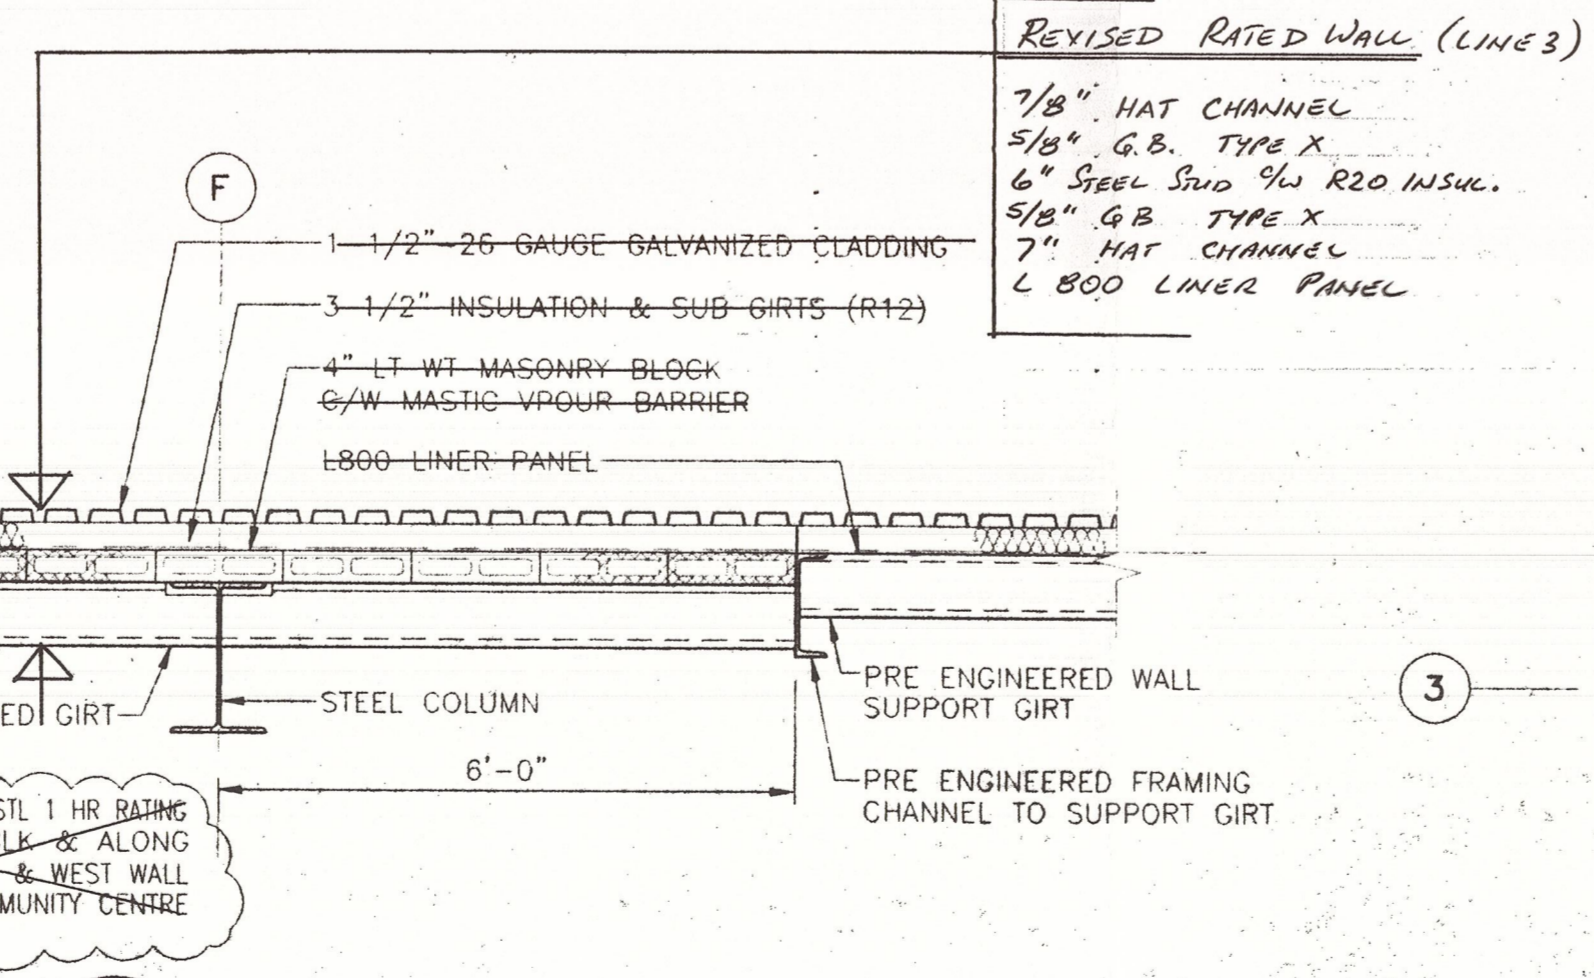 REVISED RATED WALL (LINE 3)
7/8" HAT CHANNEL
5/8" G.B. TYPE X
6" STEEL STUD C/W R20 INSUL.
5/8" GB TYPE X
7" HAT CHANNEL
L 800 LINER PANEL
F
1 1/2" 26 GAUGE GALVANIZED CLADDING
3 1/2" INSULATION & SUB GIRTS (R12)
4" LT WT MASONRY BLOCK
C/W MASTIC VPOUR BARRIER
L800 LINER PANEL
ED GIRT
STEEL COLUMN
PRE ENGINEERED WALL
SUPPORT GIRT
3
6'-0"
PRE ENGINEERED FRAMING
CHANNEL TO SUPPORT GIRT
STL 1 HR RATING
LK & ALONG
& WEST WALL
MUNITY CENTRE